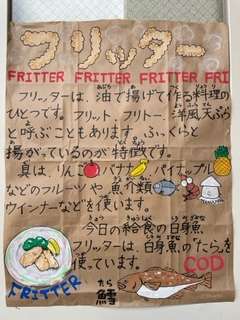 フリッター
FRITTER FRITTER FRITTER FRI
フリッターは、油で揚げて作る料理の
ひとつです。フリット、フリトー、洋風天ぷら
と呼ぶこともあります。ふっくらと
揚がっているのが特徴です。
具は、りんご、バナナ、パイナップル
などのフルーツや魚介類、
ウインナーなどを使います。
今日の給食の白身魚
フリッターは、白身魚の“たら”を
使っています。
COD
FRITTER
たら
鱈